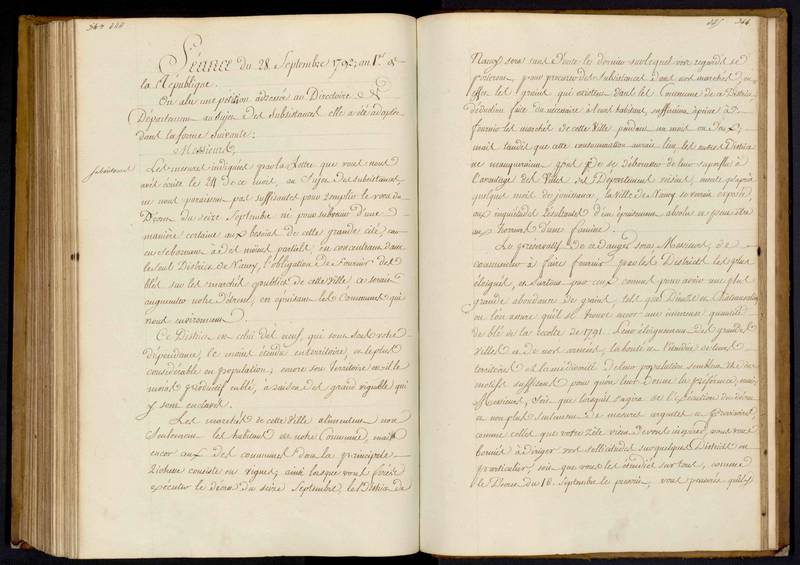 Séance du 28 Septembre 1792, an 1er de
la République.
On a lu une pétition adressée au Directoire du
Département au sujet des subsistances elle a été adoptée
dans la forme suivante;
Messieurs,
subsistances
Les mesures indiquées par la Lettre que vous nous
avés écrite le 24 de ce mois, au sujet des subsistances,
ne nous paraissent pas suffisantes pour remplir le vœu du
Décret du seize Septembre ni pour subvenir d'une
manière certaine aux besoins de cette grande cité; car
en se bornant à des moiens partiels, en concentrant dans
le seul District de Nancy, l'obligation de fournir des
blés sur les marchés publics de cette Ville ce serait
augmenter notre détresse, en épuisant les Communes qui
nous environnent.
Ce District est celui des neuf, qui sont sous votre
dépendance, le moins étendu en territoire, et le plus
considérable en population; encore son territoire est-il le
moins productif en blé, à raison des grands vignobles qui
y sont enclavés.
Les marchés de cette Ville alimentent non
seulement les habitans de notre Commune, mais
encor ceux des communes dont la principale
richesse consiste en vignes; ainsi lorsque vous feriés
exécuter le décret du seize Septembre, le District de
Nancy sera sans doute le dernier sur lequel vos regards se
fixeront, pour procurer des subsistances dans nos marchés; en
effet les grains qui existent dans les Communes de ce District
déduction faite du nécessaire à leurs habitans, suffiraient à peine à
fournir les marchés de cette Ville pendant un mois ou deux;
mais tandis que cette consommation aurait lieu, les autres Districts
ne manqueraient pas de se débarrasser de leur superflu à
l'avantage des Villes des Départemens voisins, et après
quelques mois de jouissance, la Ville de Nancy se verrait exposée,
aux inquiétudes résultantes d'un épuisement absolu et peut être
aux horreurs d'une famine.
Le préservatif de ce danger sera Messieurs, de
commencer à faire fournir par les Districts les plus
éloignés, et surtout par ceux connus pour avoir une plus
grande abondance de grains, tels que Dieuze et Chateausalins
où l'on assure qu'il se trouve encor une immense quantité
de blé de la récolte de 1791. Leur éloignement des grandes
Villes et de nos armées, la bonté et l'étendue de leur
territoire et la médiocrité de leur population semblent être des
motifs suffisans pour qu'on leur donne la préférence, mais
Messieurs, soit que lorsqu'il s'agira de l'exécution du décret
et non plus seulement de mesures urgentes et provisoires
comme celles que votre zèle vient de vous inspirer, vous vous
borniés à diriger vos sollicitudes sur quelques Districts en
particulier, soit que vous les étendiés sur tous, comme
le Décret du 16 Septembre le prescrit, vous penserés qu'il